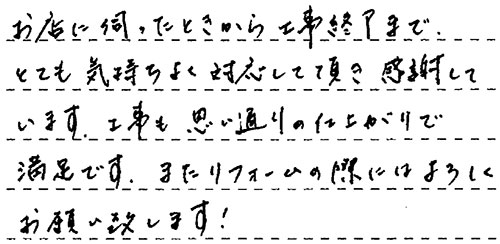 お店に伺ったときから工事終了まで、
とても気持ちよく対応して頂き感謝して
います。工事も思い通りの仕上がりで
満足です。またリフォームの際にはよろしく
お願い致します!